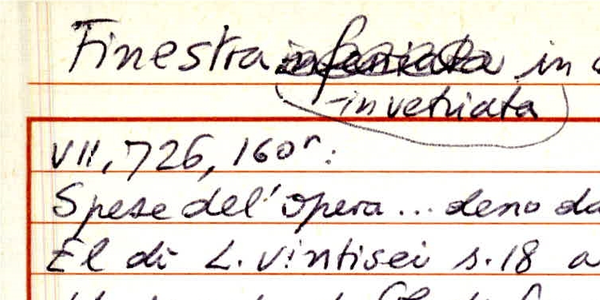 Finestra in
invetriata
VII, 726, 160r:
Spese del'opera... deno da
El dì L. vintisei s. 18 a